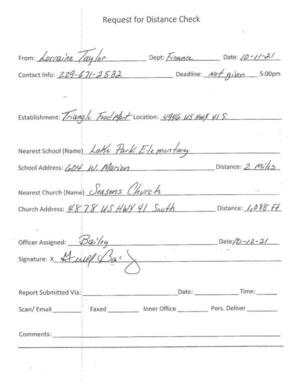 Request for Distance Check
From: Lorraine Taylor Dept: Finance Date: 10-11-21
Contact Info: 229-671-2532 Deadline: Not given 5:00pm
Establishment: Triangle Food Mart Location: 4986 US HWY 41 S.
Nearest School (Name) Lake Park Elementary
School Address: 604 W. Marion Distance: 2 Miles
Nearest Church (Name) Seasons Church
Church Address: 4878 US HWY 41 South Distance: 1,088 Ft
Officer Assigned: Bailey Date: 10-12-21
Signature: X
Report Submitted Via: Date: Time:
Scan/ Email Faxed Inner Office Pers. Deliver
Comments: